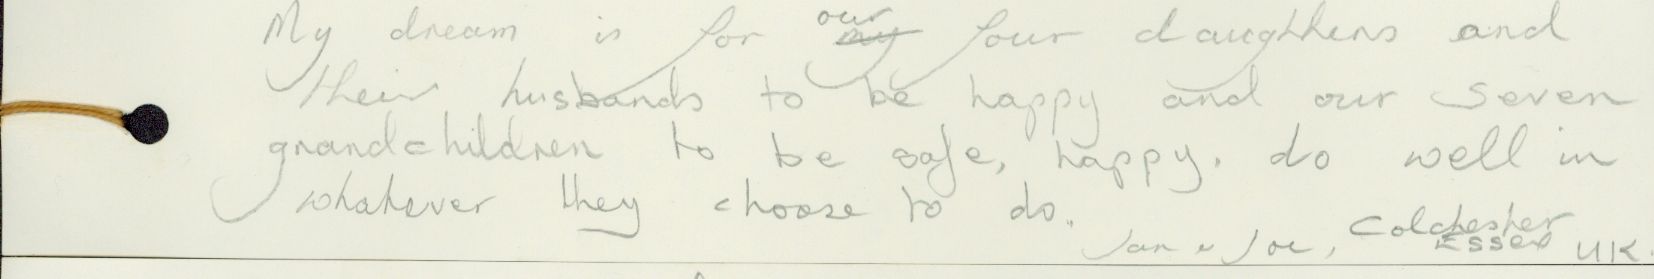 My dream is for our my four daughters and
their husbands to be happy and our seven
grandchildren to be safe, happy, do well in
whatever they choose to do.
Jan & Joe, Colchester
Essex UK.